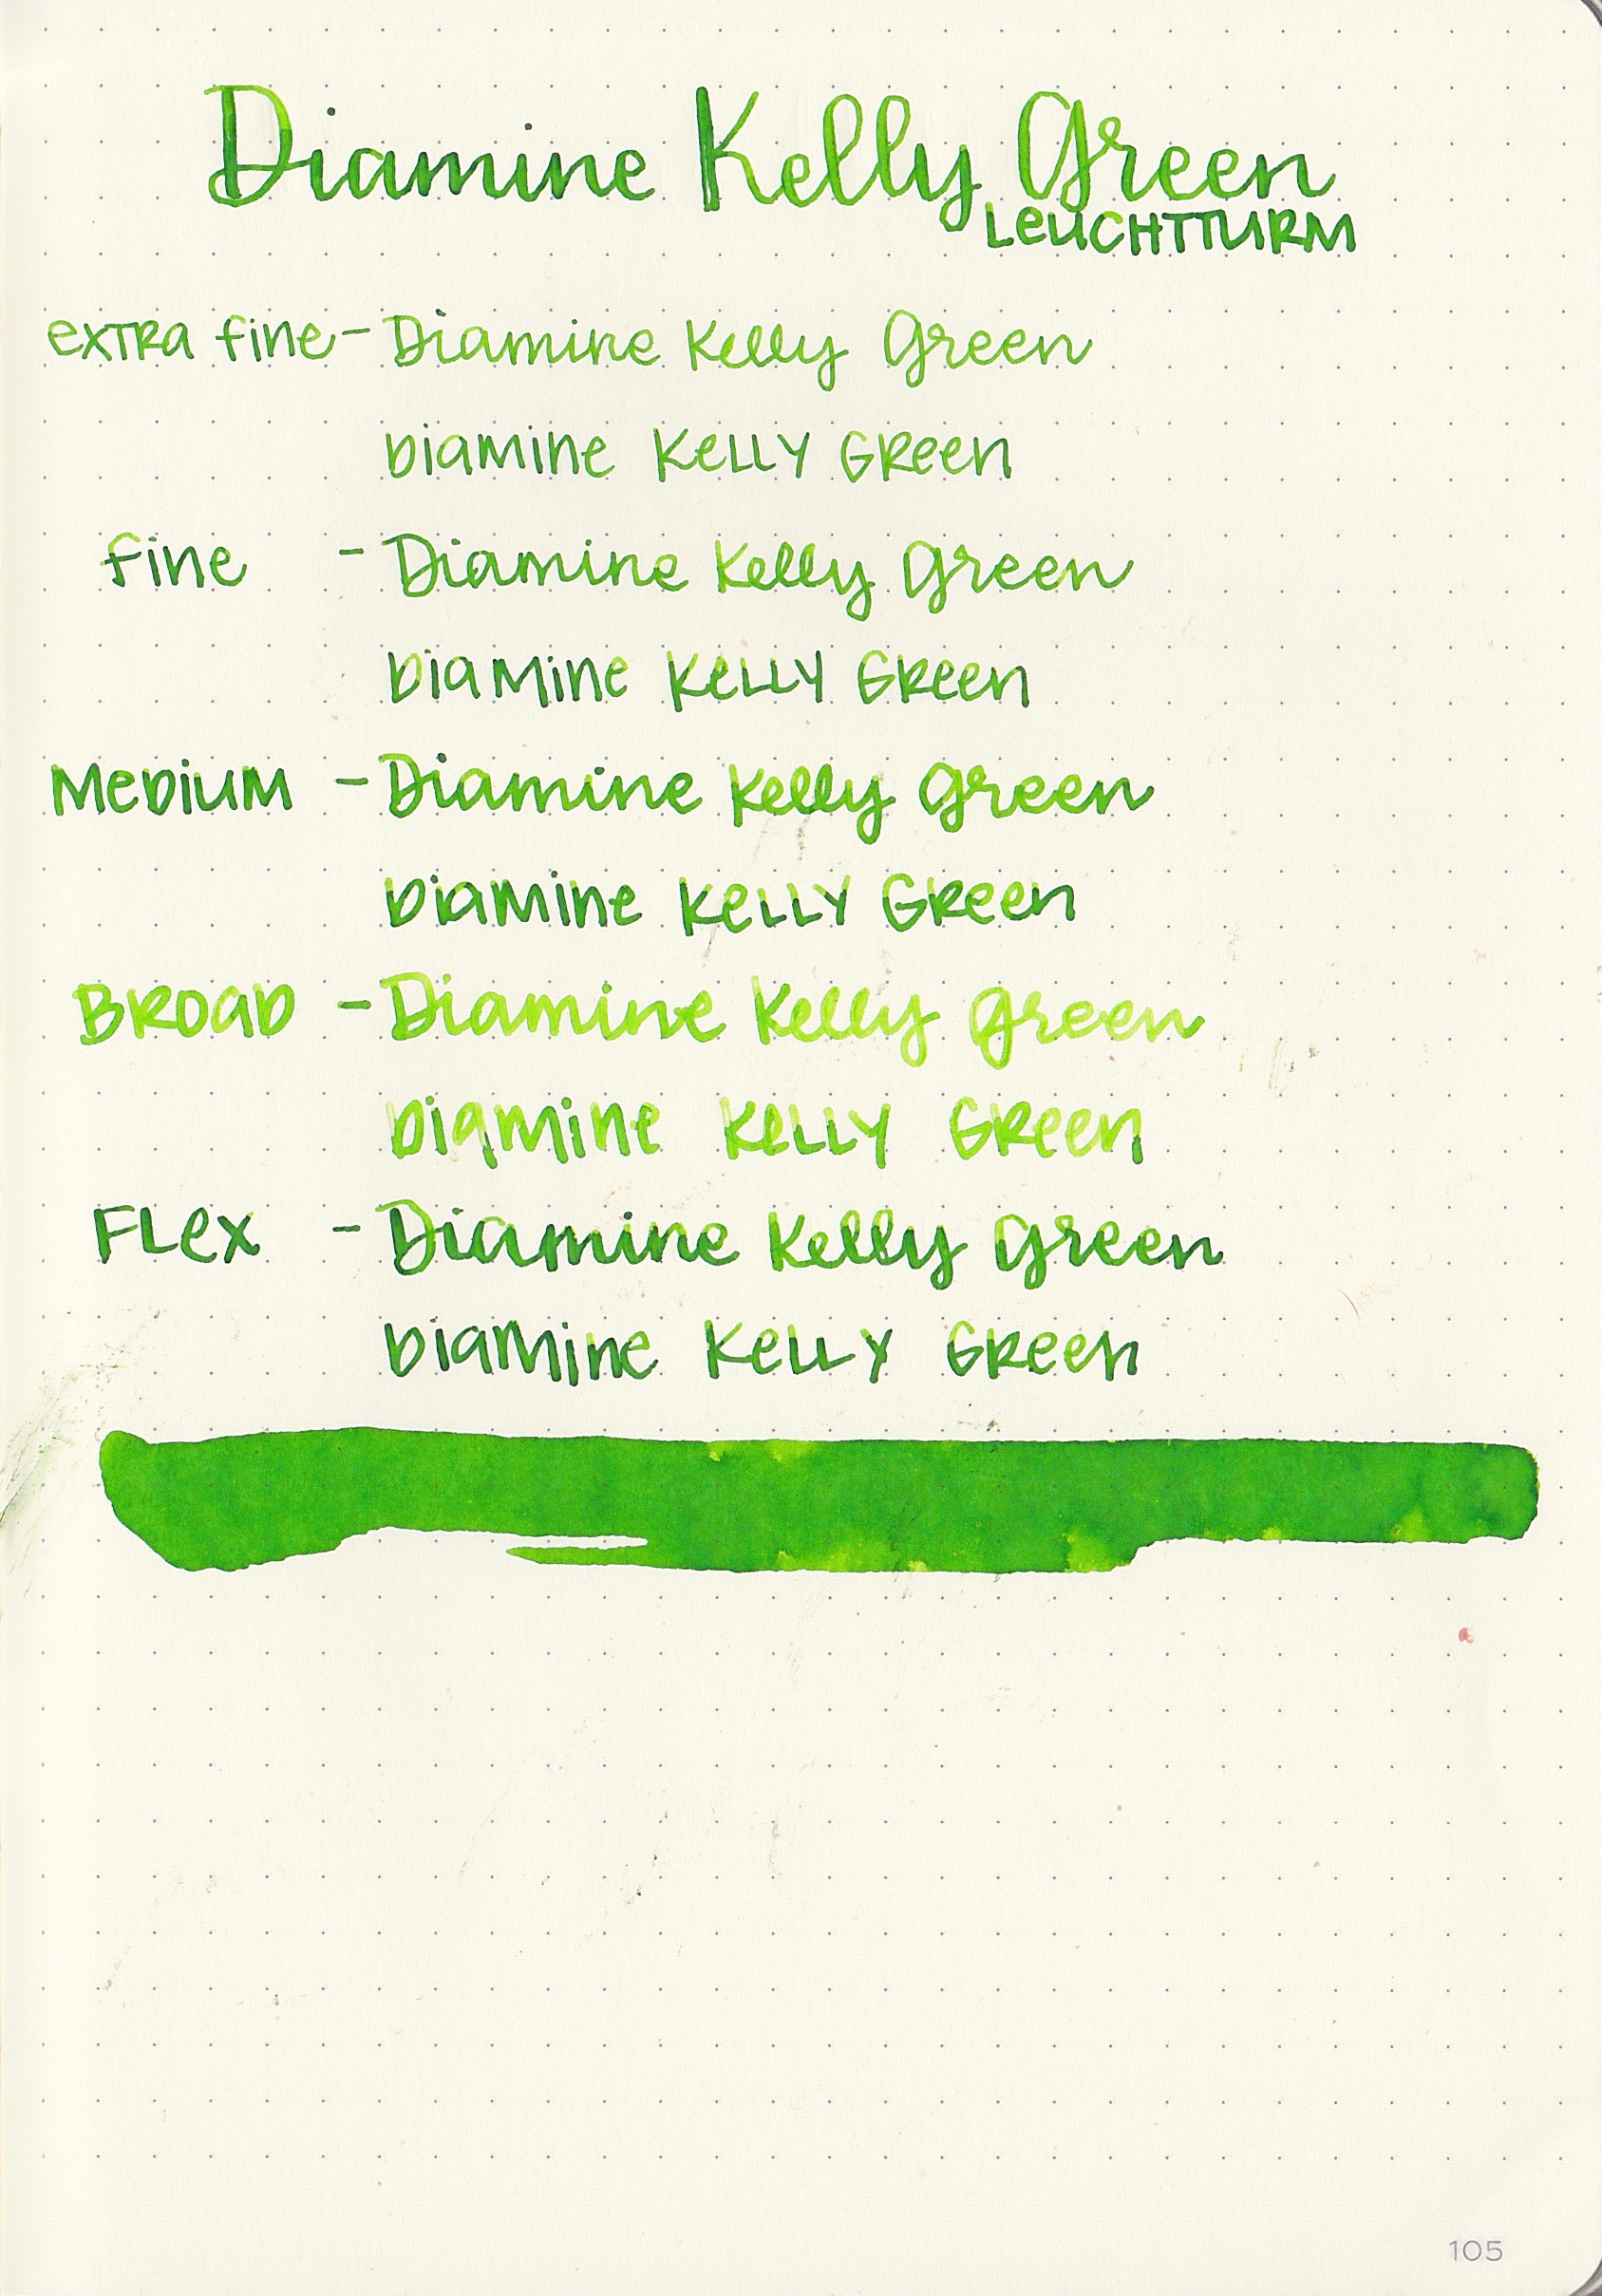 Diamine Kelly Green
LeUCHTTURM
exTRa fine - Diamine Kelly Green
DiaMine KeLLY GReen
fine - Diamine Kelly Green
DiaMine KeLLY GReen
MeDiUM - Diamine Kelly Green
DiaMine KeLLY GReen
BROaD - Diamine Kelly Green
DiaMine KeLLY GReen
FLex - Diamine Kelly Green
DiaMine KeLLY GReen
105